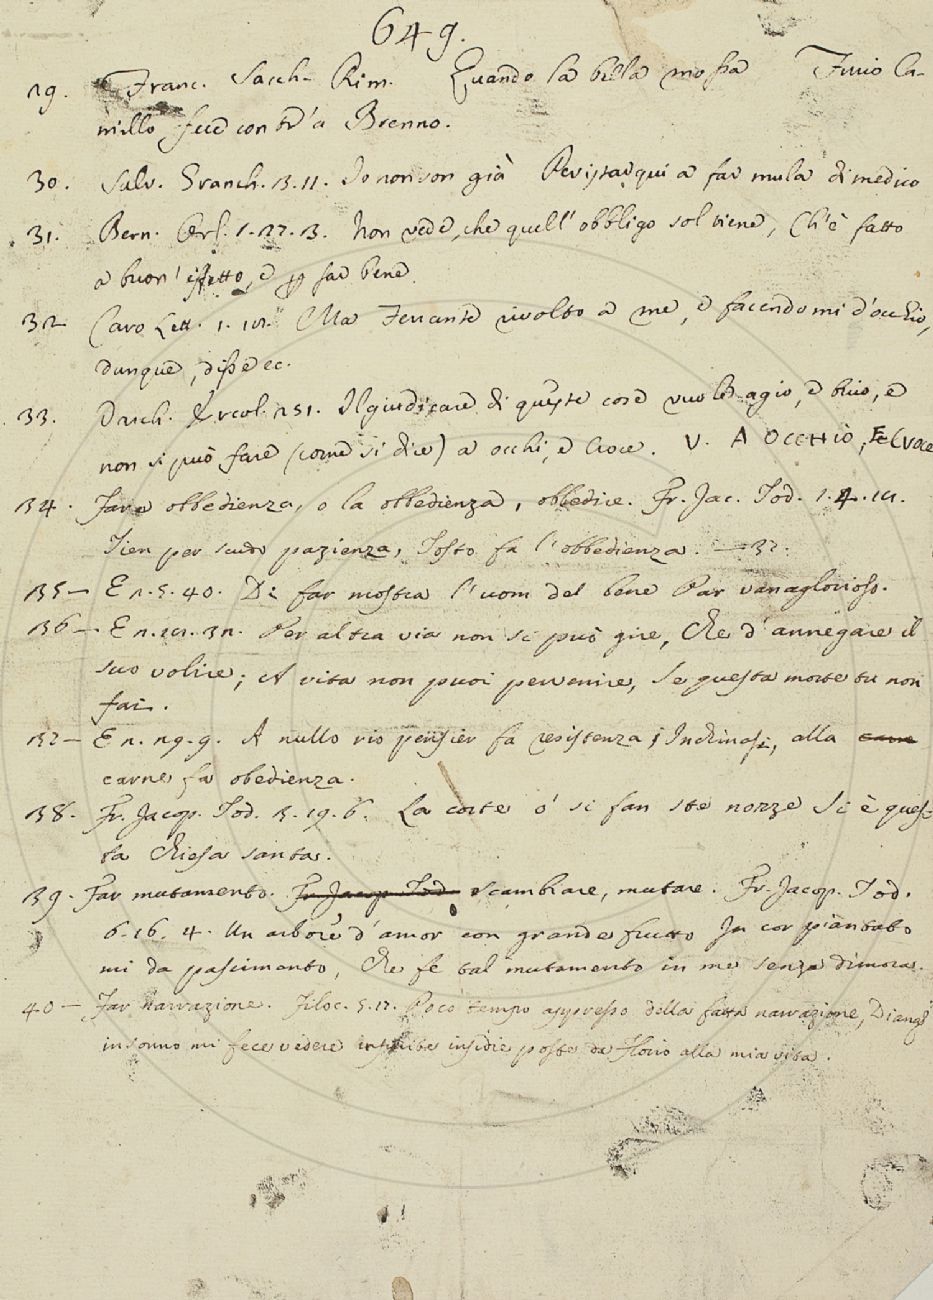 649.
29. Franc. Sacch. Rim. Quando la bella mossa Furio Ca-
millo fece contr'a Brenno.
30. Salv. Granch. 3. 11. Io non son già Per istar qui a far mula di medico
31. Bern. Orl. 1. 27. 3. Non vede, che quell'obbligo sol tiene, Ch'è fatto
a buon'effetto, e p far bene.
32 Caro Lett. 1. Ma Ferrante rivolto a me, e facendomi d'occhio,
dunque, disse ec.
33. Varch. Ercol. 251. Il giudicare di queste cose vuole agio, e buio, e
non si può fare (come si dice) a occhi, e croce. V. A OCCHIO, E CROCE
134. Fare obbedienza, o la obbedienza, obbedire. Fr. Jac. Tod. 1. 4.
Tien per scudo pazienza, Tosto fa l'obbedienza. — 37.
135 — E 2. 5. 40. Di far mostra l'uom del bene Par vanaglorioso.
136 — E 2. Per altra via non si può gire, Che d'annegare il
suo volire; A vita non puoi pervenire, Se questa morte tu non
fai.
137 — E 2. 29. 9. A nullo rio pensier fa resistenza; Inchinasi, alla carne
carne fa obedienza.
138. Fr. Jacop. Tod. 3. 19. 6. La corte o' si fan ste nozze Si è ques-
ta Chiesa santa.
139. Far mutamento. Fr. Jacop. Tod. scambiare, mutare. Fr. Jacop. Tod.
6. 16. 4. Un arbore d'amor con grande frutto In cor piantato
mi da pascimento, Che fe tal mutamento in me senza dimora.
40 — Far narrazione. Filoc. 5. 17. Poco tempo appresso della fatta narrazione, Diana
in sonno mi fece vedere infinite insidie poste da Florio alla mia vita.